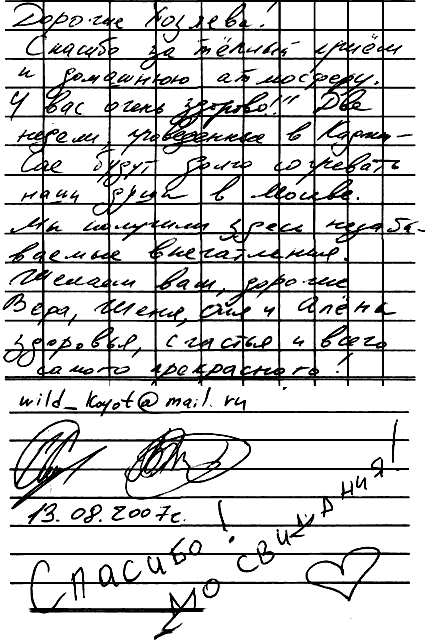 Дорогие Хозяева!
Спасибо за тёплый приём
и домашнюю атмосферу.
У вас очень здорово!!! Две
недели, проведенные в
будут долго согревать
наши души в Москве.
Мы получили здесь незабы-
ваемые впечатления.
Желаем вам, дорогие
Вера, Женя, и Алёна
здоровья, счастья и всего
самого прекрасного!
wild_koyot@mail.ru
13.08.2007г.
Спасибо!
До свидания!